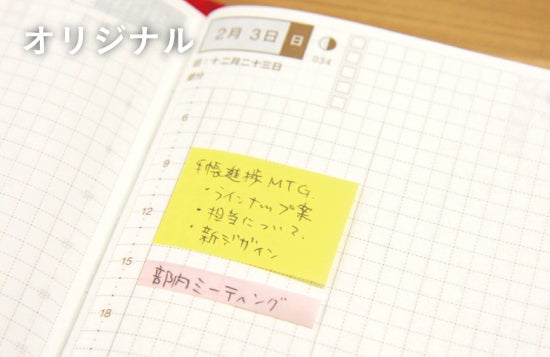 オリジナル
2月 3日 日
034
旧:十二月二十三日
節分
6
9
手帳進捗MTG.
・ラインナップ案
・担当について.
・新デザイン
12
15
部内ミーティング
18